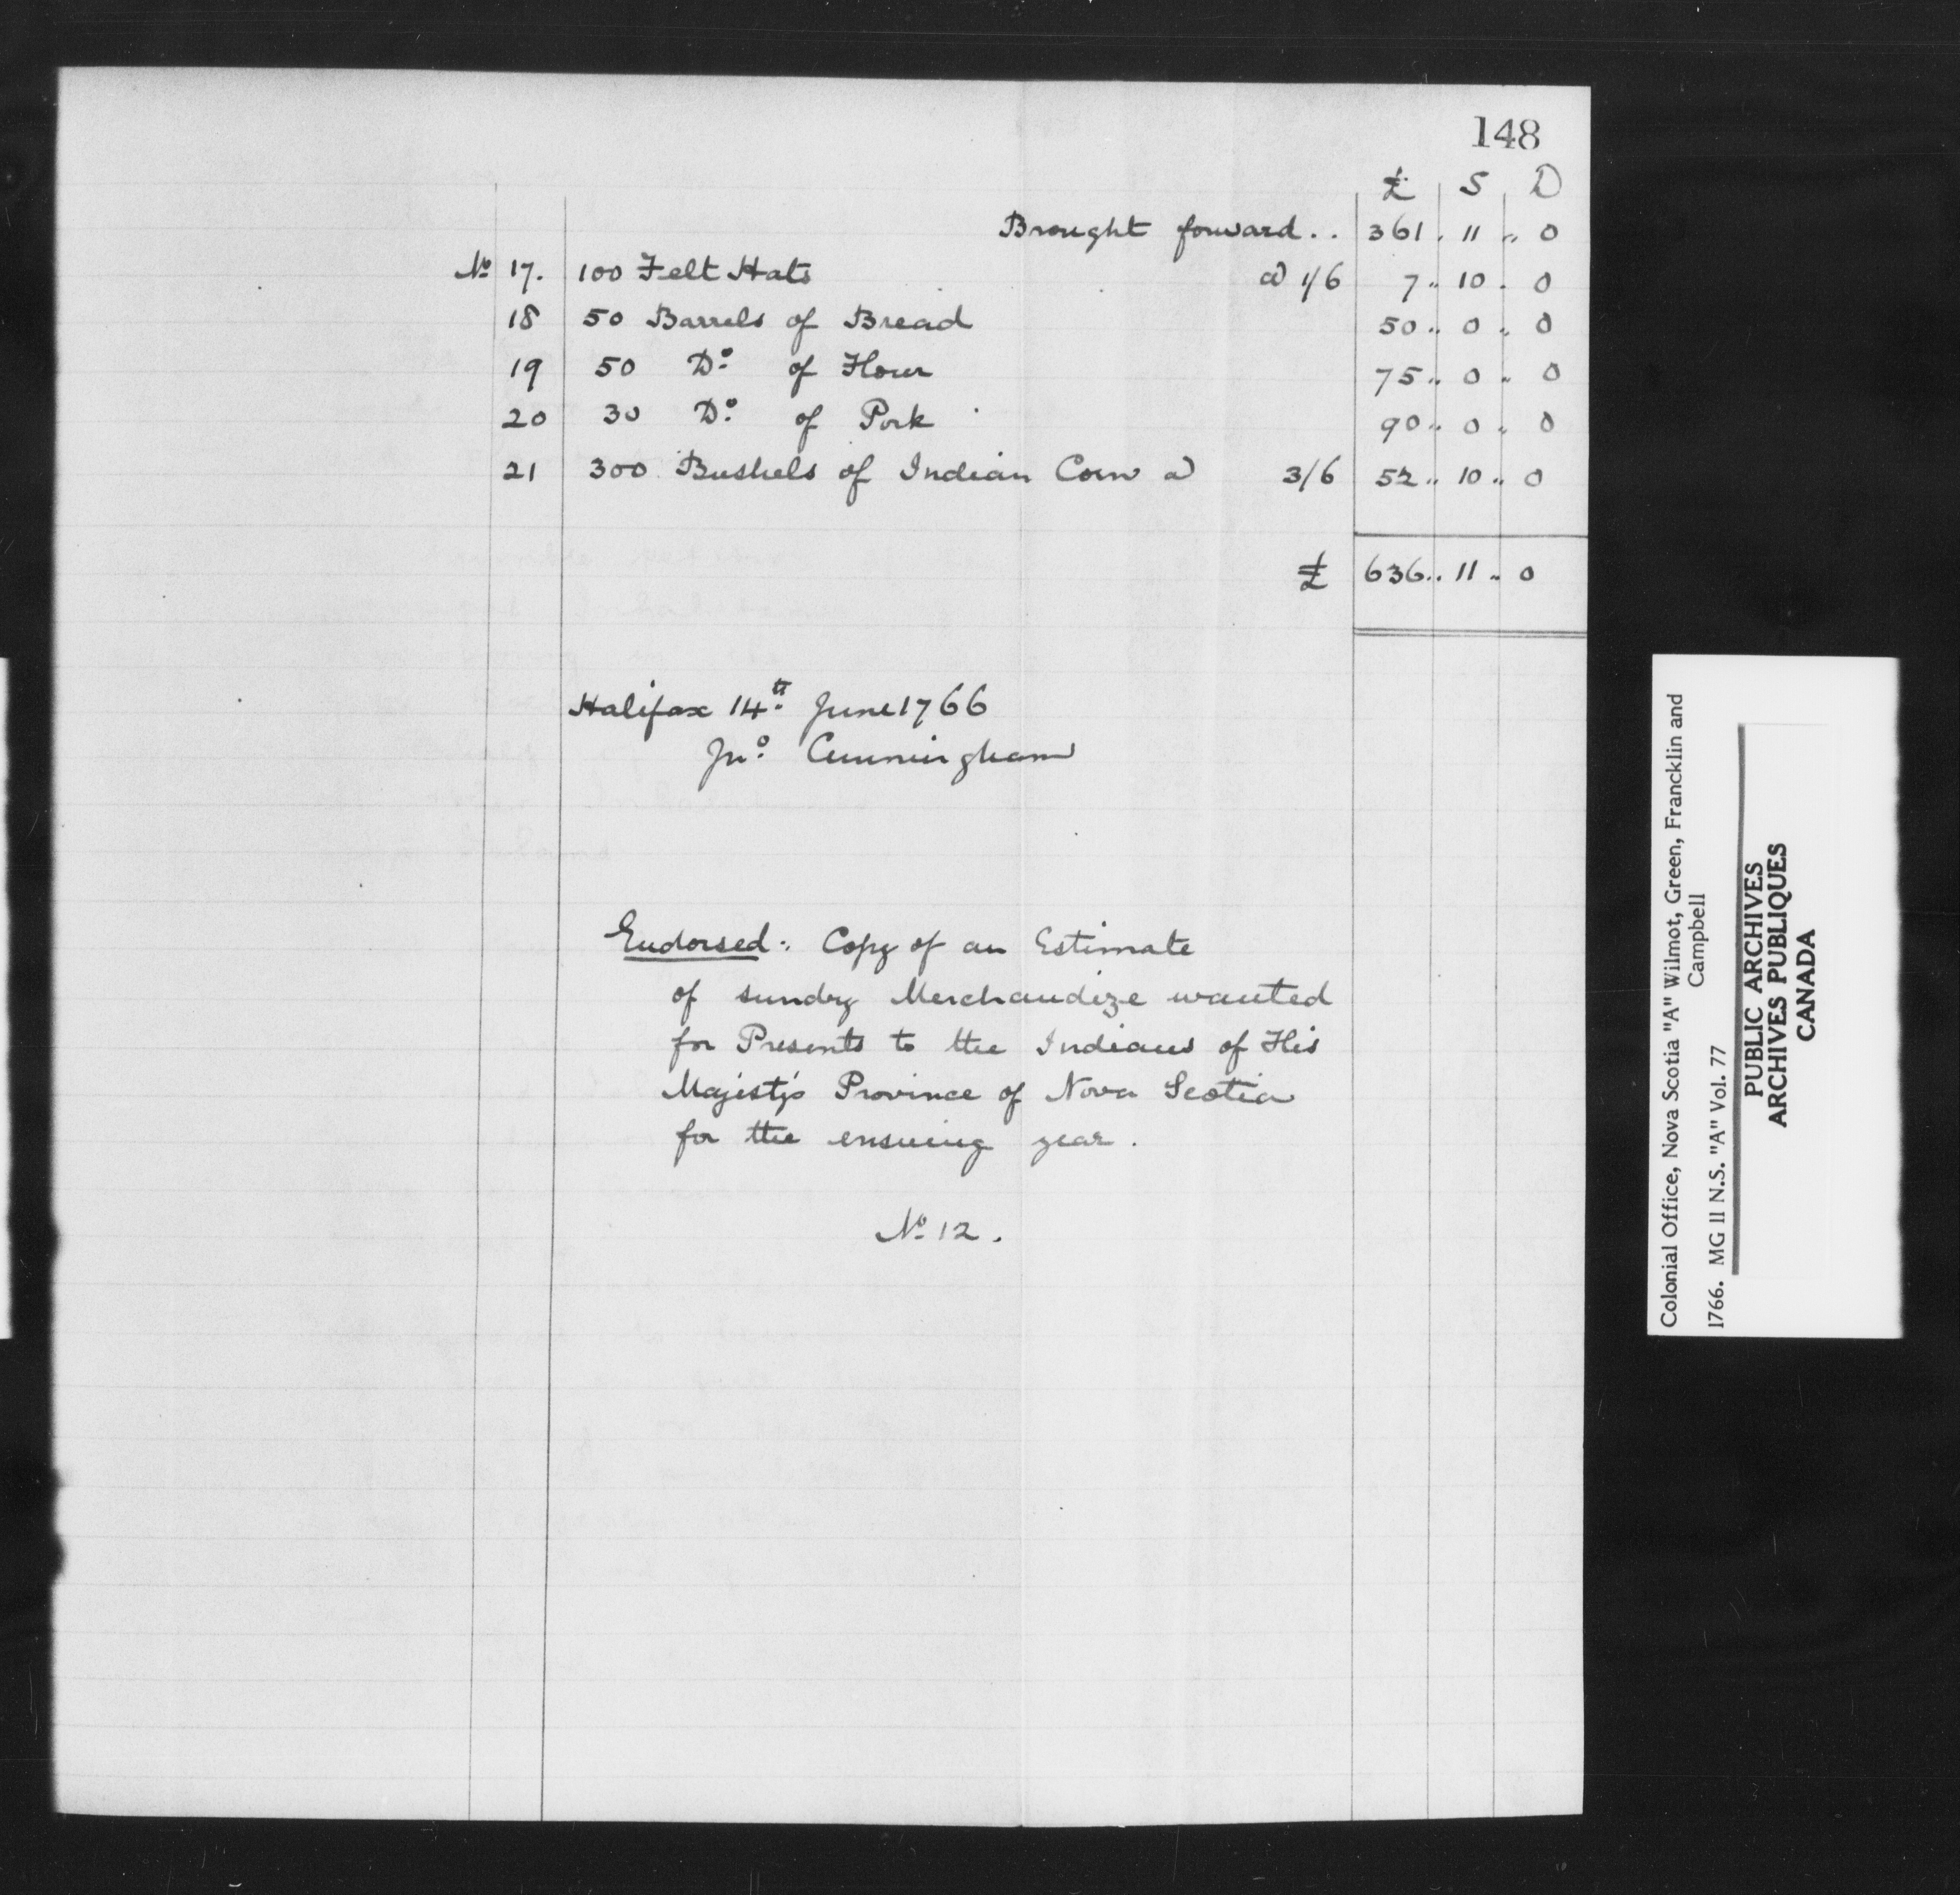 148
£ S D
Brought forward .. 361 . 11 .. 0
No 17. 100 Felt Hats @ 1/6 7 .. 10 . 0
18 50 Barrels of Bread 50 .. 0 .. 0
19 50 Do of Flour 75 .. 0 .. 0
20 30 Do of Pork 90 .. 0 .. 0
21 300 Bushels of Indian Corn @ 3/6 52 .. 10 .. 0
£ 636 .. 11 .. 0
Halifax 14th June 1766
Jno Cunningham
Endorsed: Copy of an Estimate
of sundry Merchandize wanted
for Presents to the Indians of His
Majesty's Province of Nova Scotia
for the ensuing year.
No 12.
Colonial Office, Nova Scotia "A" Wilmot, Green, Francklin and
Campbell
1766. MG 11 N.S. "A" Vol. 77
PUBLIC ARCHIVES
ARCHIVES PUBLIQUES
CANADA